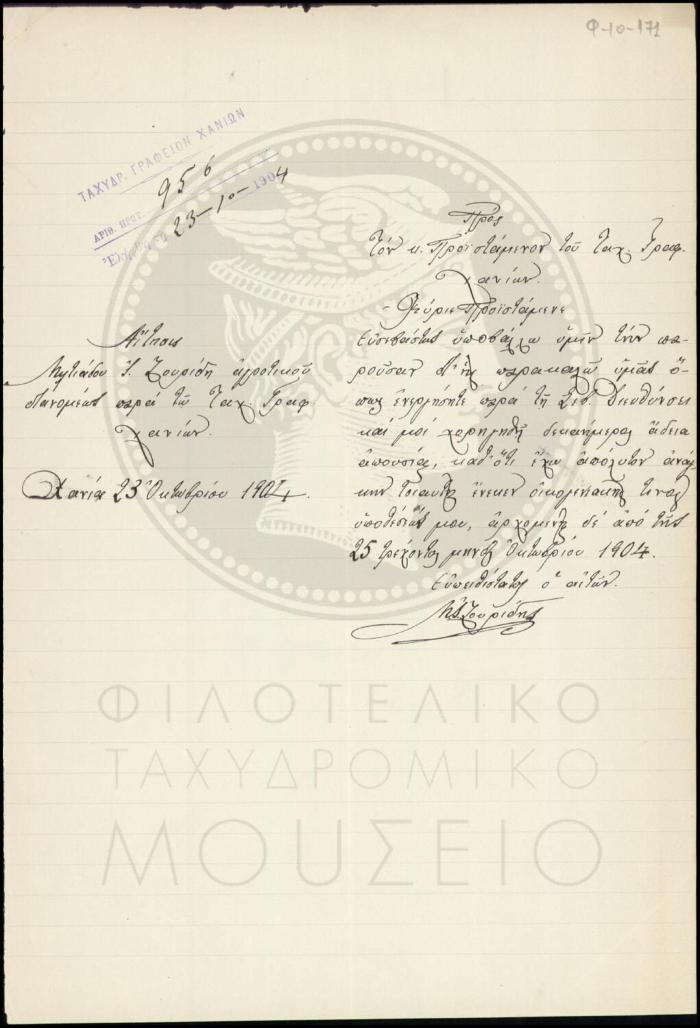 Φ-10-171
ΤΑΧΥΔΡ. ΓΡΑΦΕΙΟΝ ΧΑΝΙΩΝ
ΑΡΙΘ. ΠΡΩΤ. 956
Ἐλήφθη τῇ 23-10-1904
Πρὸς
Τὸν κ. Προϊστάμενον τοῦ Ταχ. Γραφ.
Χανίων.
Κύριε Προϊστάμενε
Εὐσεβάστως ὑποβάλλω ὑμῖν τὴν πα-
ροῦσαν δι' ἧς παρακαλῶ ὑμᾶς ὅ-
πως ἐνεργήσητε παρὰ τῇ Σεβ. Διευθύνσει
καὶ μοὶ χορηγηθῇ δεκαήμερος ἄδεια
ἀπουσίας, καθ' ὅτι ἔχω ἀπόλυτον ἀνάγ-
κην τοιαύτης ἕνεκεν οἰκογενειακῆς τινος
ὑποθέσεώς μου, ἀρχομένης δὲ ἀπὸ τῆς
25 τρέχοντος μηνὸς Ὀκτωβρίου 1904.
Εὐπειθέστατος ὁ αἰτῶν.
Μ. Ι. Ζουρίδης
Αἴτησις
Μιλτιάδου Ι. Ζουρίδη ἀγροτικοῦ
διανομέως παρὰ τῷ Ταχ. Γραφ.
Χανίων.
Χανία 23 Ὀκτωβρίου 1904.
ΦΙΛΟΤΕΛΙΚΟ
ΤΑΧΥΔΡΟΜΙΚΟ
ΜΟΥΣΕΙΟ